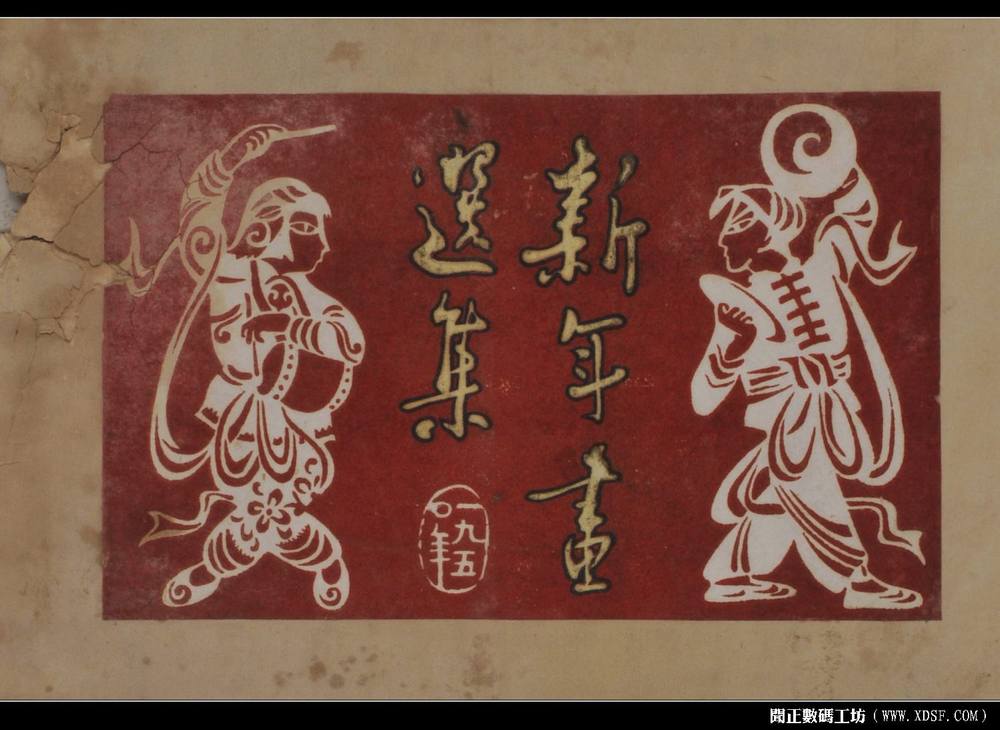 新年畫
選集
一九五〇年
閱正數碼工坊（WWW.XDSF.COM）